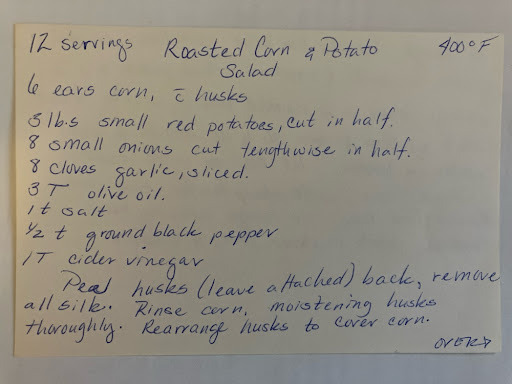 12 servings Roasted Corn & Potato 400°F
Salad
6 ears corn, c̄ husks
3 lb.s small red potatoes, cut in half.
8 small onions cut lengthwise in half.
8 cloves garlic, sliced.
3 T olive oil.
1 t salt
1/2 t ground black pepper
1 T cider vinegar
Peal husks (leave attached) back, remove
all silk. Rinse corn, moistening husks
thoroughly. Rearrange husks to cover corn.
OVER→